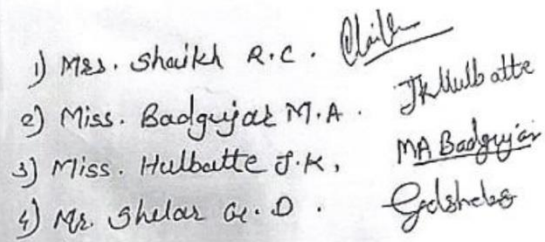 1) Mrs. Shaikh R.C.
2) Miss. Badgujar M.A. JKHulbatte
3) Miss. Hulbatte J.K, MA Badgujar
4) Mr. Shelar G.D. Gdshelar